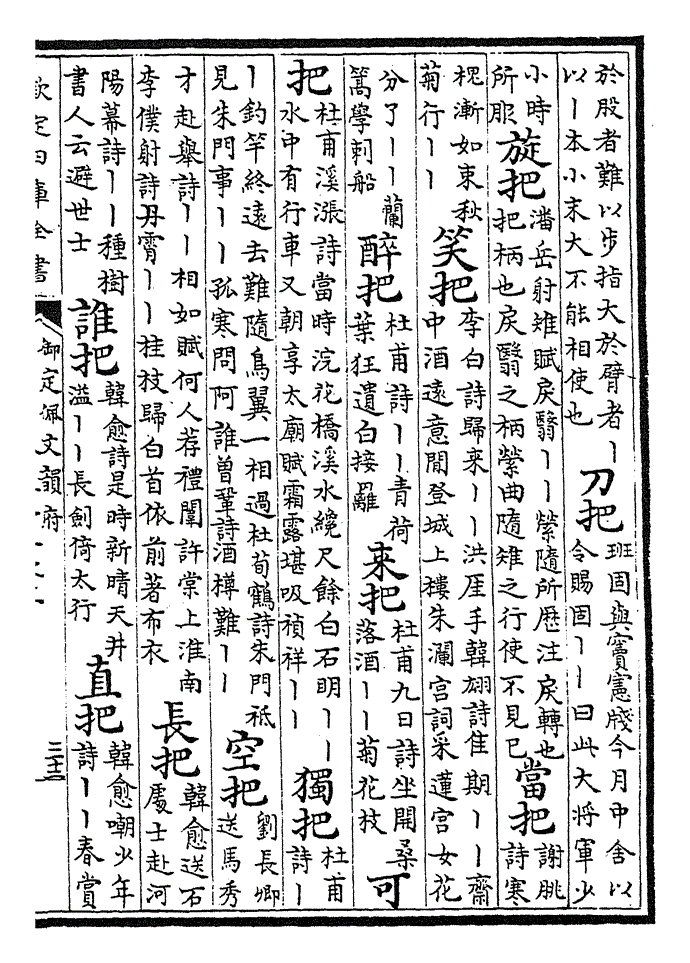 於股者難以步指大於臂者丨
以丨本小末大不能相使也
刀把
班固與竇憲牋今月中舍以
令賜固丨丨曰此大将軍少
小時
所服
旋把
潘岳射雉賦戾翳丨丨縈隨所歷注戾轉也
把柄也戾翳之柄縈曲隨雉之行使不見已
當把
謝朓
詩寒
槐漸如束秋
菊行丨丨
笑把
李白詩歸来丨丨洪厓手韓翃詩佳期丨丨齋
中酒遠意閒登城上樓朱瀾宫詞采蓮宫女花
分了丨丨蘭
篙學刺船
醉把
杜甫詩丨丨青荷
葉狂遺白接䍦
来把
杜甫九日詩坐開桑
落酒丨丨菊花枝
可
把
杜甫溪漲詩當時浣花橋溪水纔尺餘白石明丨丨
水中有行車又朝享太廟賦霜露堪吸禎祥丨丨
獨把
杜甫
詩丨
丨釣竿終遠去難隨鳥翼一相過杜荀鶴詩朱門祗
見朱門事丨丨孤寒問阿誰曾鞏詩酒樽難丨丨
空把
劉長卿
送馬秀
才赴舉詩丨丨相如賦何人荐禮闈許棠上淮南
李僕射詩丹霄丨丨桂枝歸白首依前著布衣
長把
韓愈送石
處士赴河
陽幕詩丨丨種樹
書人云避世士
誰把
韓愈詩是時新晴天井
溢丨丨長劍倚太行
直把
韓愈嘲少年
詩丨丨春賞
欽定四庫全書
御定佩文韻府
三十三